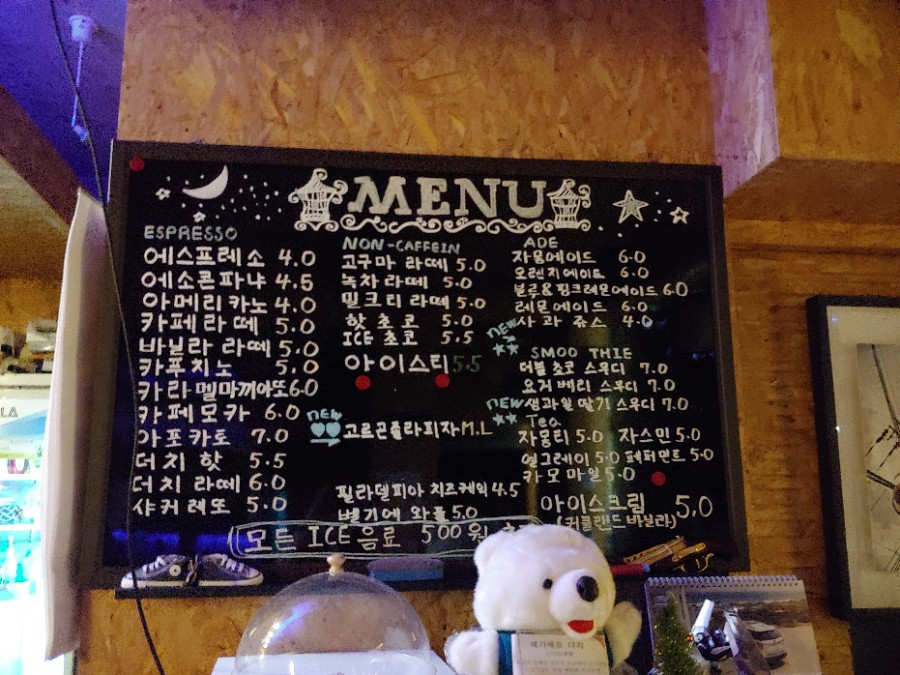 MENU
ESPRESSO
에스프레소 4.0
에소콘파냐 4.5
아메리카노 4.0
카페라떼 5.0
바닐라 라떼 5.0
카푸치노 5.0
카라멜마끼아또 6.0
카페모카 6.0
아포카토 7.0
더치 핫 5.5
더치 라떼 6.0
샤커레또 5.0
NON-CAFFEIN
고구마 라떼 5.0
녹차 라떼 5.0
밀크티 라떼 5.0
핫 초코 5.0
ICE 초코 5.5
아이스티 5.5
new
고르곤졸라피자 M.L
필라델피아 치즈케익 4.5
벨기에 와플 5.0
ADE
자몽에이드 6.0
오렌지에이드 6.0
블루&핑크레몬에이드 6.0
레몬에이드 6.0
new 사과 쥬스 4.0
SMOOTHIE
더블 초코 스무디 7.0
요거 베리 스무디 7.0
new 생과일 딸기 스무디 7.0
Tea
자몽티 5.0 자스민 5.0
얼그레이 5.0 페퍼먼트 5.0
카모마일 5.0
아이스크림 5.0
(커클랜드 바닐라)
모든 ICE음료 500원